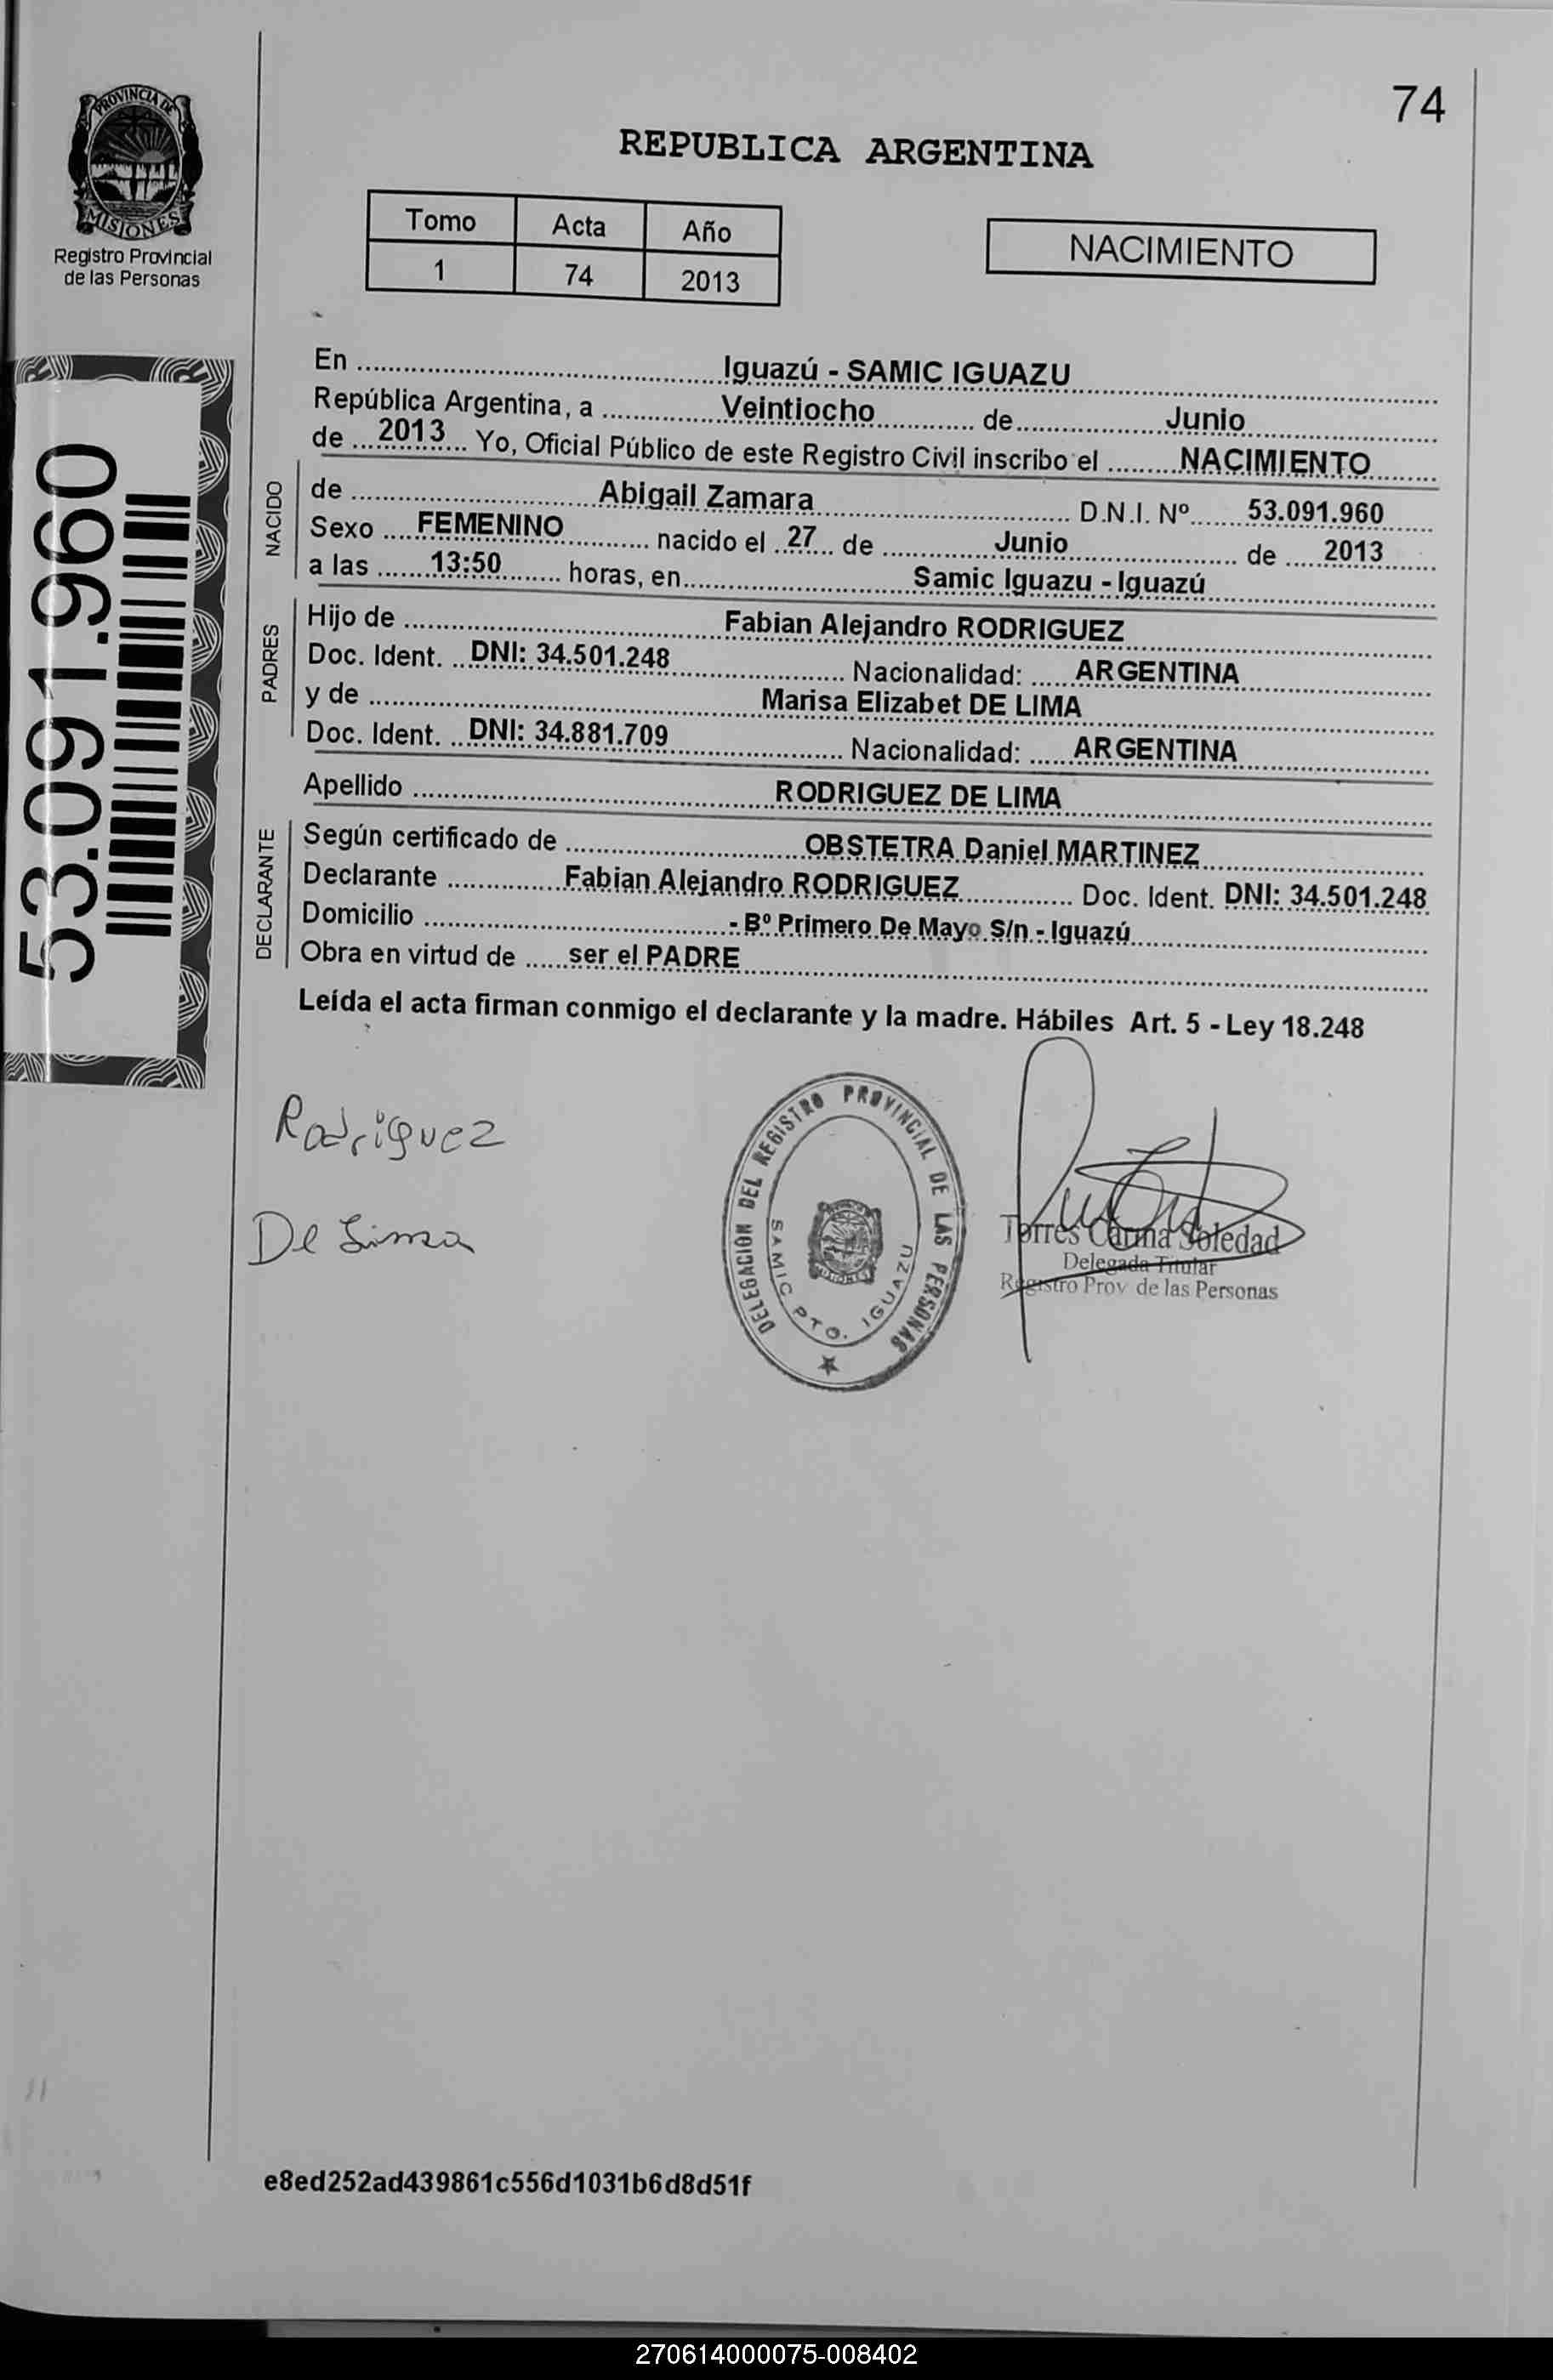 74
PROVINCIA DE
MISIONES
Registro Provincial
de las Personas
REPUBLICA ARGENTINA
Tomo Acta Año
1 74 2013
NACIMIENTO
53.091.960
En Iguazú - SAMIC IGUAZU
República Argentina, a Veintiocho de Junio
de 2013 Yo, Oficial Público de este Registro Civil inscribo el NACIMIENTO
NACIDO
de Abigail Zamara D.N.I. Nº 53.091.960
Sexo FEMENINO nacido el 27 de Junio de 2013
a las 13:50 horas, en Samic Iguazu - Iguazú
PADRES
Hijo de Fabian Alejandro RODRIGUEZ
Doc. Ident. DNI: 34.501.248 Nacionalidad: ARGENTINA
y de Marisa Elizabet DE LIMA
Doc. Ident. DNI: 34.881.709 Nacionalidad: ARGENTINA
Apellido RODRIGUEZ DE LIMA
DECLARANTE
Según certificado de OBSTETRA Daniel MARTINEZ
Declarante Fabian Alejandro RODRIGUEZ Doc. Ident. DNI: 34.501.248
Domicilio - Bº Primero De Mayo S/n - Iguazú
Obra en virtud de ser el PADRE
Leída el acta firman conmigo el declarante y la madre. Hábiles Art. 5 - Ley 18.248
Rodriguez
De Lima
DELEGACION DEL REGISTRO PROVINCIAL DE LAS PERSONAS
SAMIC PTO. IGUAZU
Torres Carina Soledad
Delegada Titular
Registro Prov de las Personas
e8ed252ad439861c556d1031b6d8d51f
270614000075-008402